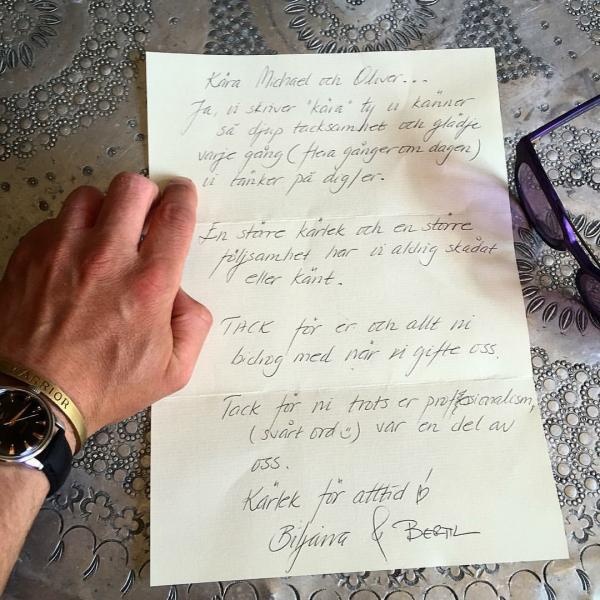 Kära Michael och Oliver...
Ja, vi skriver "kära" ty vi känner
så djup tacksamhet och glädje
varje gång (flera gånger om dagen)
vi tänker på dig/er.
En större kärlek och en större
följsamhet har vi aldrig skådat
eller känt.
TACK för er och allt ni
bidrog med når vi gifte oss.
Tack för ni trots er professionalism,
(svårt ord ☺) var en del av
oss.
Kärlek för alltid!
Biljana & BERTIL
WARRIOR